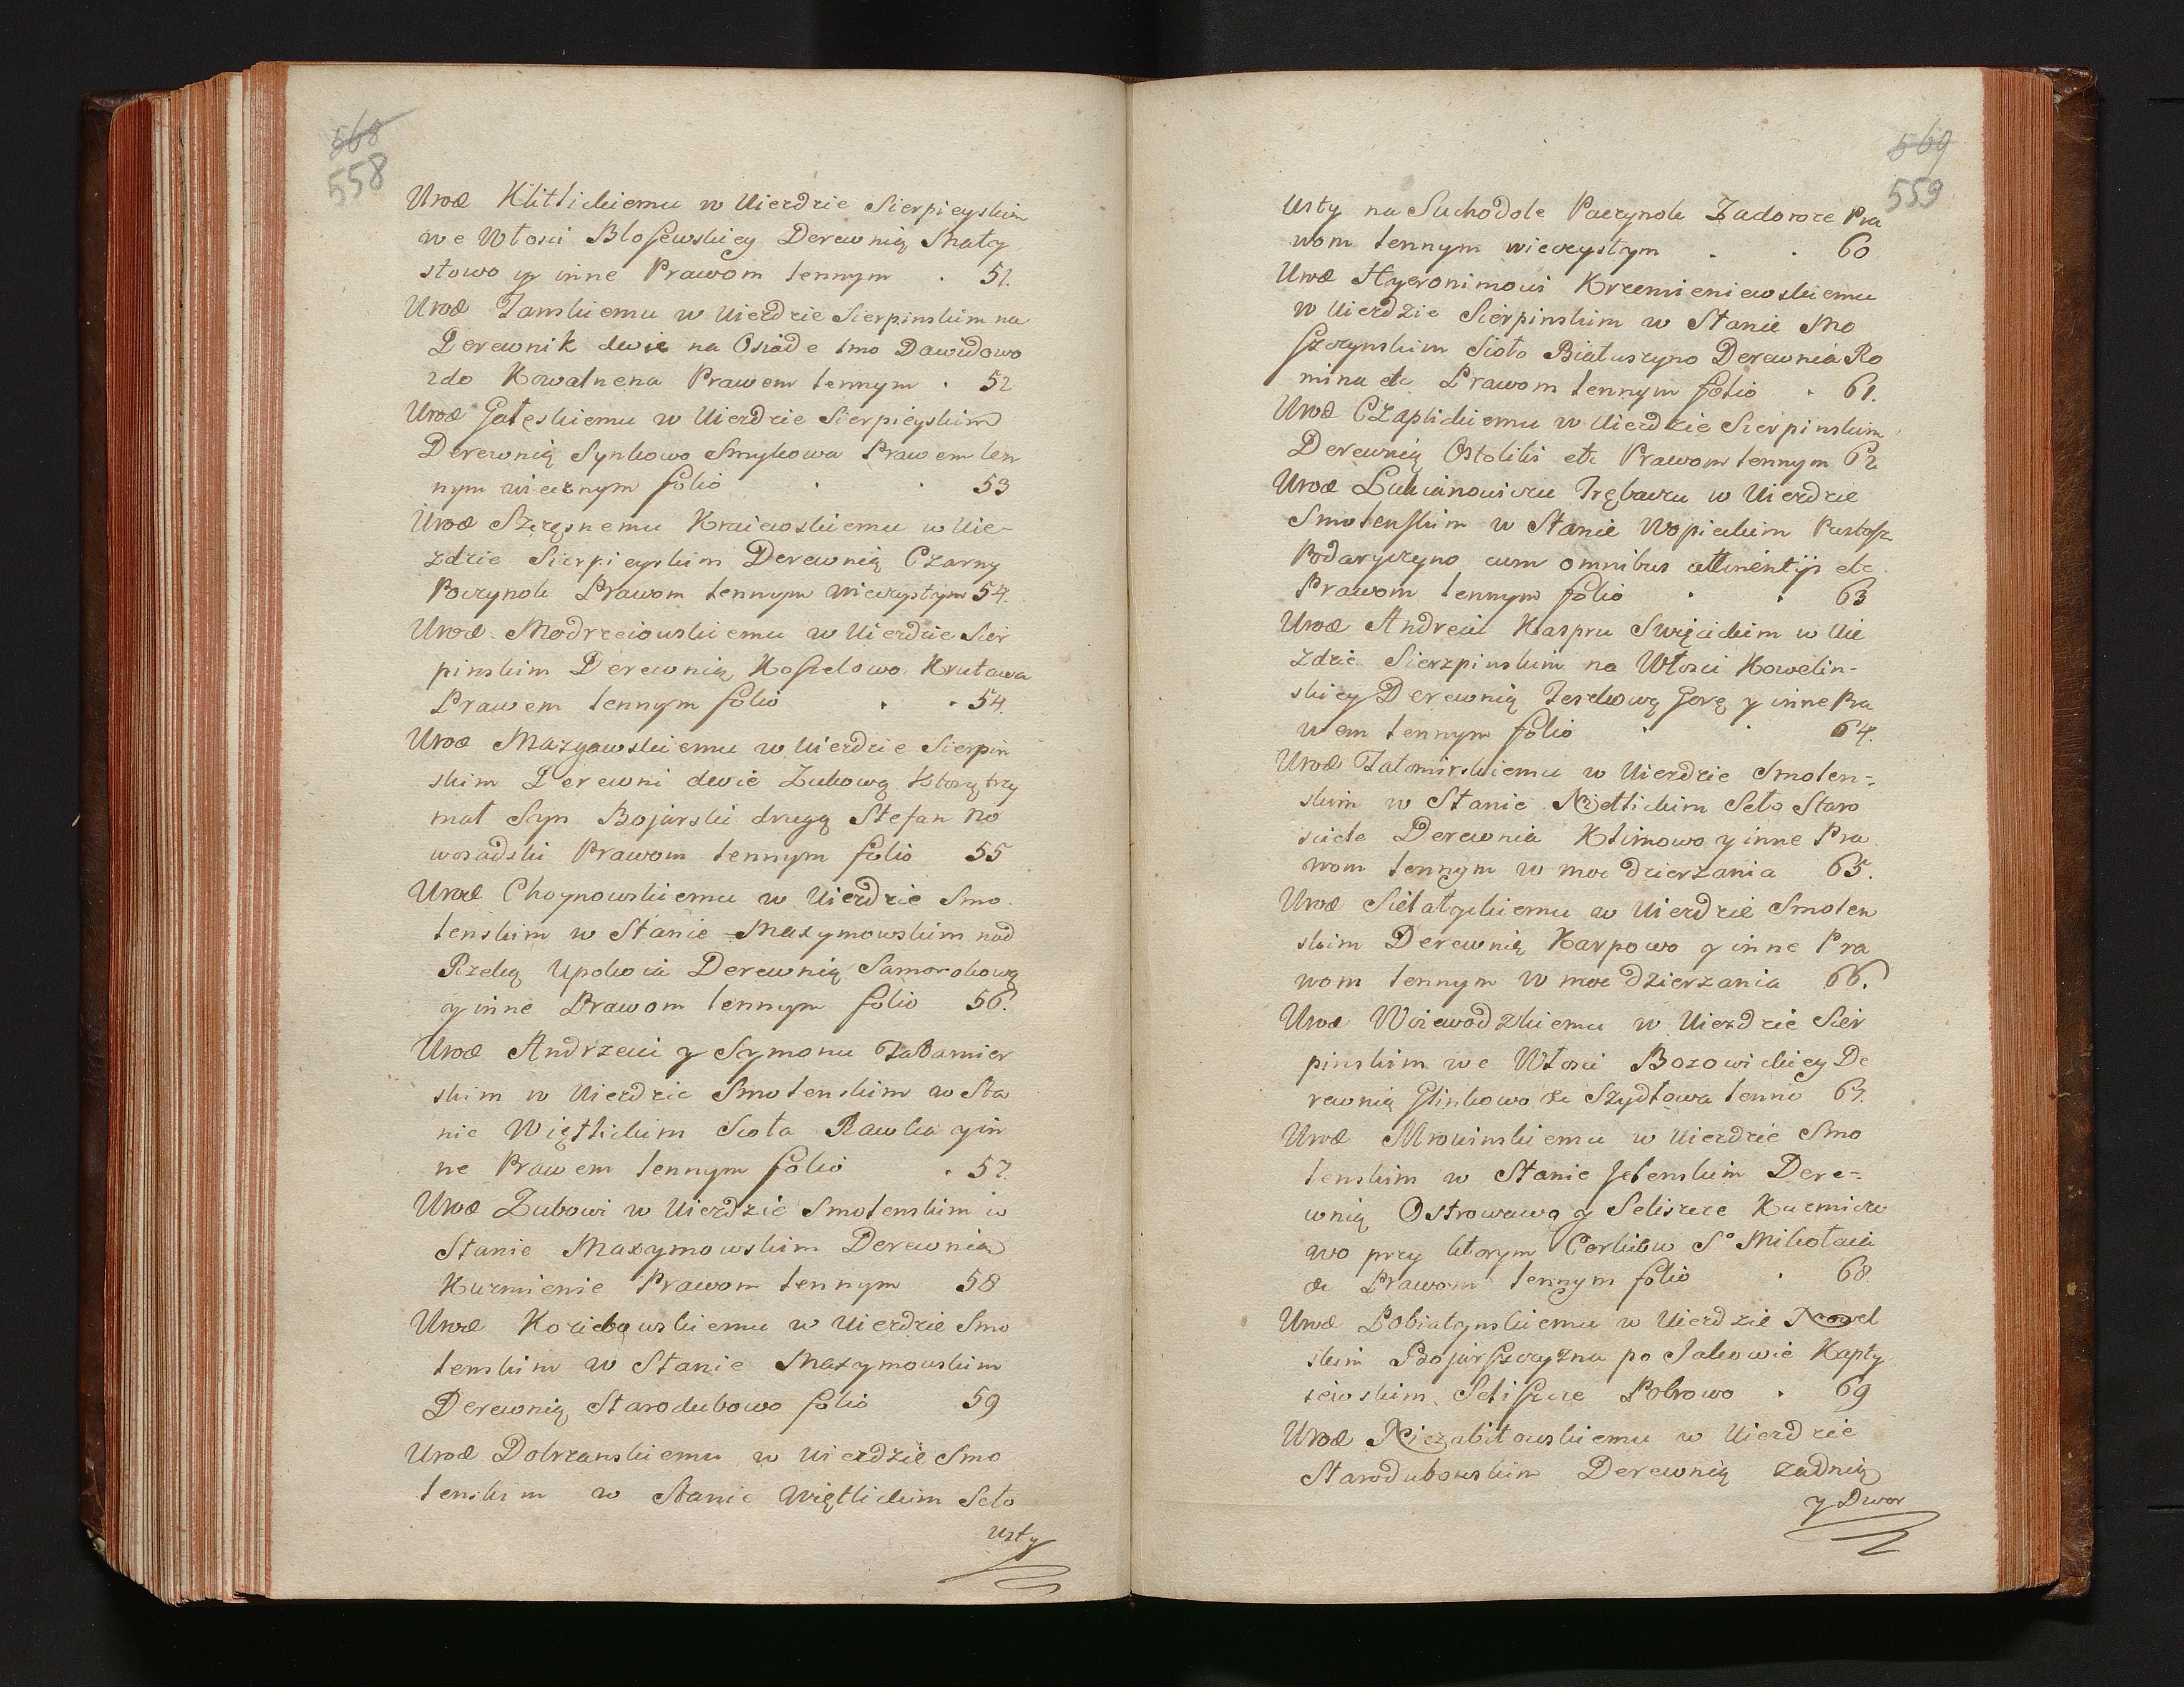 568
558
Urod Klitlickiemu w Uiezdzie Sierpieyskim
we Włosci Blosewskiey Derewnią Małty
stowo y inne Prawom lennym . 51.
Urod Janskiemu w Uiezdzie Sierpinskim na
Derewnik dwie na Osiade 1mo Dawidowo
2do Kowalnena Prawem lennym . 52
Urod Gałęskiemu w Uiezdzie Sierpieyskim
Derewnią Synkowo Smykowa Prawem len
nym wiecznym folio . . 53
Urod Szczęsnemu Kraiewskiemu w Uie-
zdzie Sierpieyskim Derewnią Czarny
Poczynok Prawom lennym wieczystym 54.
Urod Modrzeiowskiemu w Uiezdzie Sier
pinskim Derewnią Koszelowo Krutawa
Prawem lennym folio . . 54.
Urod Mazgawskiemu w Uiezdzie Sierpin
skim Derewni dwie Zukową ktorą trzy
mał Syn Bojarski drugą Stefan No
wosadzki Prawom lennym folio 55
Urod Choynowskiemu w Uiezdzie Smo
lenskim w Stanie Maxymowskim nad
Rzeką Upokoia Derewnią Samorokową
y inne Prawom lennym folio 56.
Urod Andrzeiu y Symonu Tałamier
skim w Uiezdzie Smolenskim w Sta
nie Więtlickim Sioła Rawka y in
ne Prawem lennym folio . 57.
Urod Zubowi w Uiezdzie Smolenskim w
Stanie Maxymowskim Derewnia
Kuzmienie Prawom lennym 58
Urod Koziebowskiemu w Uiezdzie Smo
lenskim w Stanie Maxymowskim
Derewnią Starodubowo folio 59
Urod Dobrzanskiemu w Uiezdzie Smo
lenskim w Stanie Więtlickim Seło
Usty
569
559
Usty na Suchodole Paczynok Zadoroze Pra
wom lennym wieczystym . . 60
Urod Hyeronimowi Krzemieniewskiemu
w Uiezdzie Sierpinskim w Stanie Mo
szczynskim Sioło Białuszyno Derewnia Ro
mina etc Prawom lennym folio . 61.
Urod Czaplickiemu w Uiezdzie Sierpinskim
Derewnią Ostoliki etc Prawom lennym 62
Urod Lukianowiczu Trębaczu w Uiezdzie
Smolenskim w Stanie Wopieckim Pustosz
Podaryczyno cum omnibus attinentijs etc
Prawom lennym folio . . 63
Urod Andreiu Kaspru Swięcickim w Uie
zdzie Sierzpinskim na Włosci Kowelin-
skiey Derewnią Terekową Gorę y inne Pra
wem lennym folio . . 64.
Urod Tatomirskiemu w Uiezdzie Smolen-
skim w Stanie Nietlickim Seło Staro
siele Derewnia Klimowo y inne Pra
wom lennym w moc dzierzania 65.
Urod Siełatyckiemu w Uiezdzie Smolen
skim Derewnią Karpowo y inne Pra
wom lennym w moc dzierzania 66.
Urod Woiewodzkiemu w Uiezdzie Sier
pinskim we Włosci Bozowickiey De
rewnią Glinkowo &c Szydłowa lenno 67.
Urod Mrowinskiemu w Uiezdzie Smo
lenskim w Stanie Jełenskim Dere=
wnią Ostrowawą y Seliszcze Kuzmicze
wo przy ktorym Cerkiew So Mikołaia
&c Prawom lennym folio . 68
Urod Łobiatynskiemu w Uiezdzie Newel
skim Bojarszczyzna po Jakowie Kapły
seioskim Seliszcze Pokrowo . 69
Urod Niezabitowskiemu w Uiezdzie
Starodubowskim Derewnią zadnią
y Dwor